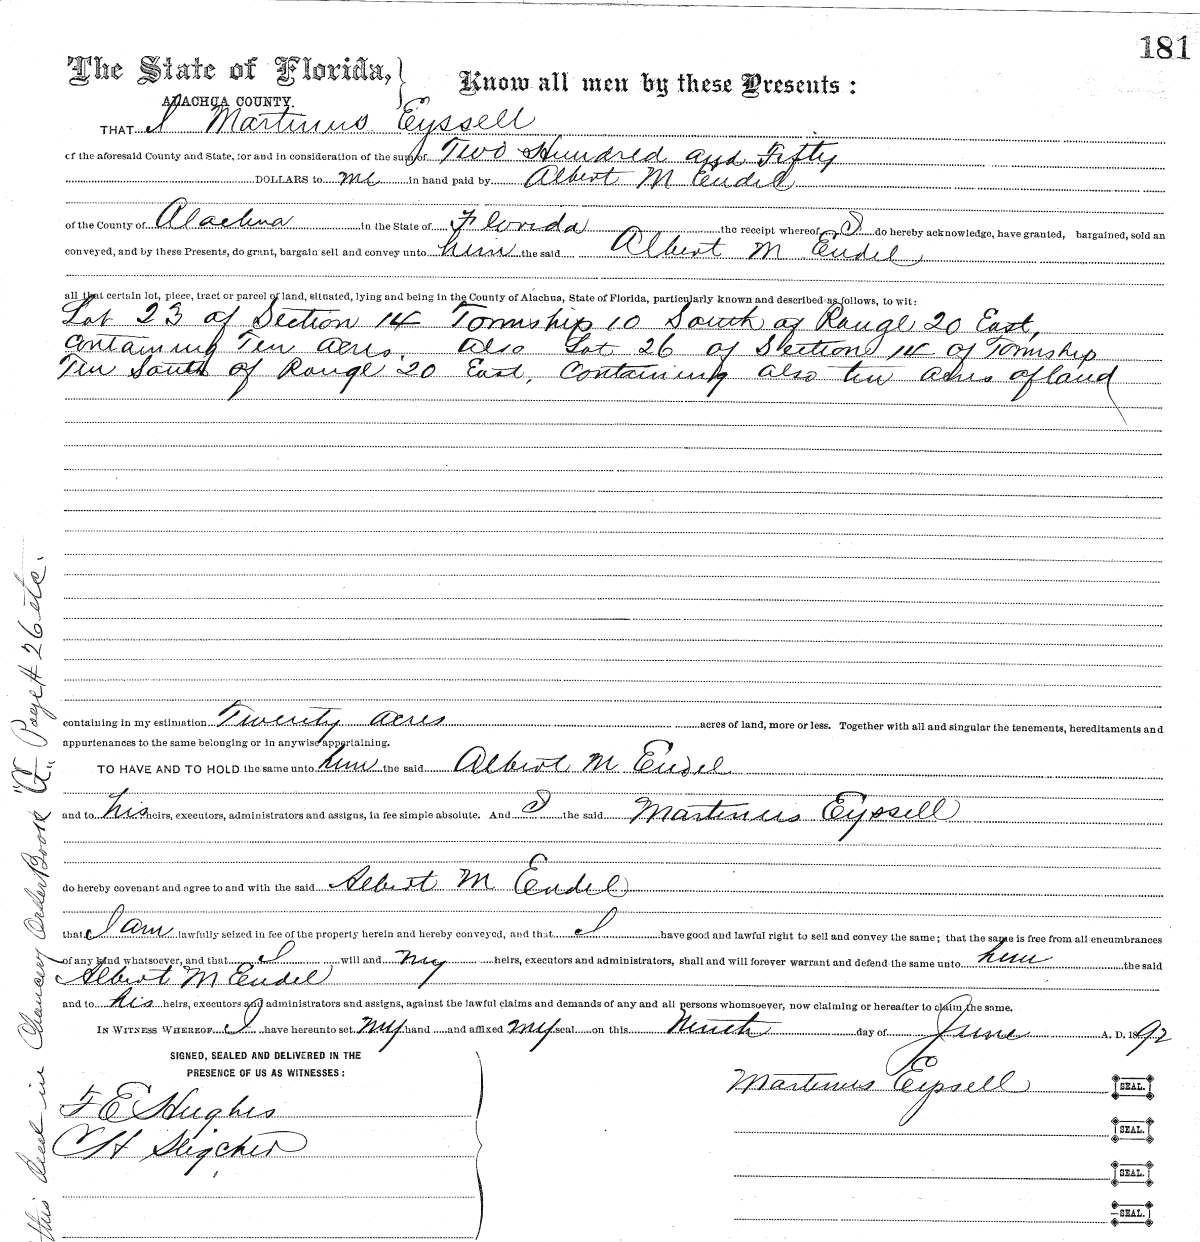 181
The State of Florida,
ALACHUA COUNTY.
Know all men by these Presents :
THAT I Martinus Eyssell
of the aforesaid County and State, for and in consideration of the sum of Two Hundred and Fifty
DOLLARS to me in hand paid by Albert M Endel
of the County of Alachua in the State of Florida the receipt whereof I do hereby acknowledge, have granted, bargained, sold an
conveyed, and by these Presents, do grant, bargain sell and convey unto him the said Albert M Endel
all that certain lot, piece, tract or parcel of land, situated, lying and being in the County of Alachua, State of Florida, particularly known and described as follows, to wit:
Lot 23 of Section 14 Township 10 South of Range 20 East,
Containing Ten acres. also Lot 26 of Section 14 of Township
Ten South of Range 20 East, Containing also ten acres of land
containing in my estimation Twenty acres acres of land, more or less. Together with all and singular the tenements, hereditaments and
appurtenances to the same belonging or in anywise appertaining.
TO HAVE AND TO HOLD the same unto him the said Albert M Endel
and to his heirs, executors, administrators and assigns, in fee simple absolute. And I the said Martinus Eyssell
do hereby covenant and agree to and with the said Albert M Endel
that I am lawfully seized in fee of the property herein and hereby conveyed, and that I have good and lawful right to sell and convey the same; that the same is free from all encumbrances
of any kind whatsoever, and that I will and my heirs, executors and administrators, shall and will forever warrant and defend the same unto him the said
Albert M Endel
and to his heirs, executors and administrators and assigns, against the lawful claims and demands of any and all persons whomsoever, now claiming or hereafter to claim the same.
IN WITNESS WHEREOF I have hereunto set my hand and affixed my seal on this Ninth day of June A. D. 1892
SIGNED, SEALED AND DELIVERED IN THE
PRESENCE OF US AS WITNESSES :
Martinus Eyssell SEAL.
F E Hughes
SEAL.
SEAL.
SEAL.
this Deed in Chancery Order Book Page # 26 etc.